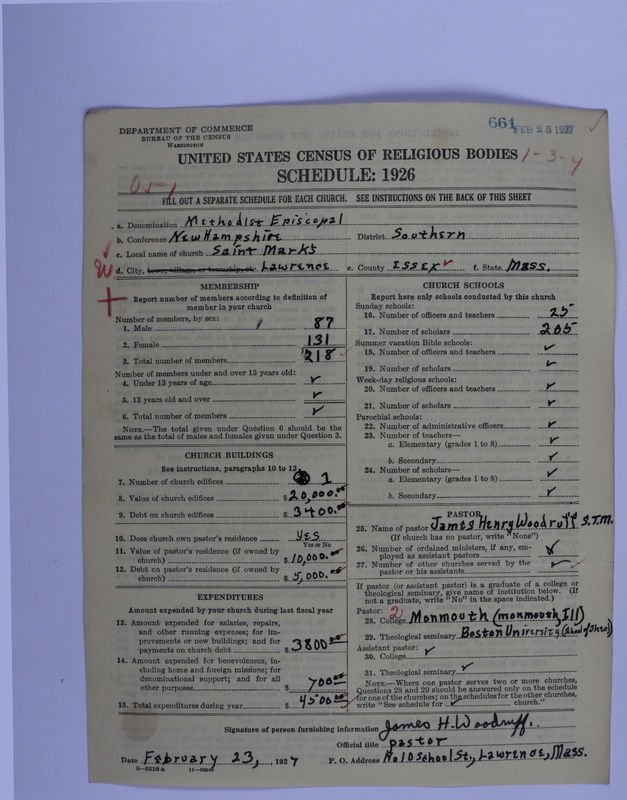 661 FEB 25 1927
DEPARTMENT OF COMMERCE
BUREAU OF THE CENSUS
WASHINGTON
UNITED STATES CENSUS OF RELIGIOUS BODIES 1-3-4
SCHEDULE: 1926
FILL OUT A SEPARATE SCHEDULE FOR EACH CHURCH. SEE INSTRUCTIONS ON THE BACK OF THIS SHEET
a. Denomination Methodist Episcopal
b. Conference New Hampshire District Southern
c. Local name of church Saint Marks
d. City, town, village, or township, etc. Lawrence e. County ESSEX ✓ f. State Mass.
MEMBERSHIP
Report number of members according to definition of
member in your church
Number of members, by sex:
1. Male 87
2. Female 131
3. Total number of members 218
Number of members under and over 13 years old:
4. Under 13 years of age ✓
5. 13 years old and over ✓
6. Total number of members ✓
NOTE.—The total given under Question 6 should be the
same as the total of males and females given under Question 3.
CHURCH BUILDINGS
See instructions, paragraphs 10 to 12
7. Number of church edifices 1
8. Value of church edifices $20,000.00
9. Debt on church edifices $3400.00
10. Does church own pastor's residence yes
Yes or No
11. Value of pastor's residence (if owned by
church) $10,000.00
12. Debt on pastor's residence (if owned by
church) $5,000.00
EXPENDITURES
Amount expended by your church during last fiscal year
13. Amount expended for salaries, repairs,
and other running expenses; for im-
provements or new buildings; and for
payments on church debt $3800.00
14. Amount expended for benevolences, in-
cluding home and foreign missions; for
denominational support; and for all
other purposes $700.00
15. Total expenditures during year $4500.00
CHURCH SCHOOLS
Report here only schools conducted by this church
Sunday schools:
16. Number of officers and teachers 25
17. Number of scholars 205
Summer vacation Bible schools:
18. Number of officers and teachers ✓
19. Number of scholars ✓
Week-day religious schools:
20. Number of officers and teachers ✓
21. Number of scholars ✓
Parochial schools:
22. Number of administrative officers ✓
23. Number of teachers—
a. Elementary (grades 1 to 8) ✓
b. Secondary ✓
24. Number of scholars—
a. Elementary (grades 1 to 8) ✓
b. Secondary ✓
PASTOR
25. Name of pastor James Henry Woodruff S.T.M.
(If church has no pastor, write "None")
26. Number of ordained ministers, if any, em-
ployed as assistant pastors ✓
27. Number of other churches served by the
pastor or his assistants ✓
If pastor (or assistant pastor) is a graduate of a college or
theological seminary, give name of institution below. (If
not a graduate, write "No" in the space indicated.)
Pastor: 2
28. College Monmouth (Monmouth, Ill)
29. Theological seminary Boston University (School of Theol)
Assistant pastor:
30. College ✓
31. Theological seminary ✓
NOTE.—Where one pastor serves two or more churches,
Questions 28 and 29 should be answered only on the schedule
for one of the churches; on the schedules for the other churches,
write "See schedule for ✓ church."
Signature of person furnishing information James H. Woodruff.
Official title pastor
Date February 23, 1927 P. O. Address No 10 School St., Lawrence, Mass.